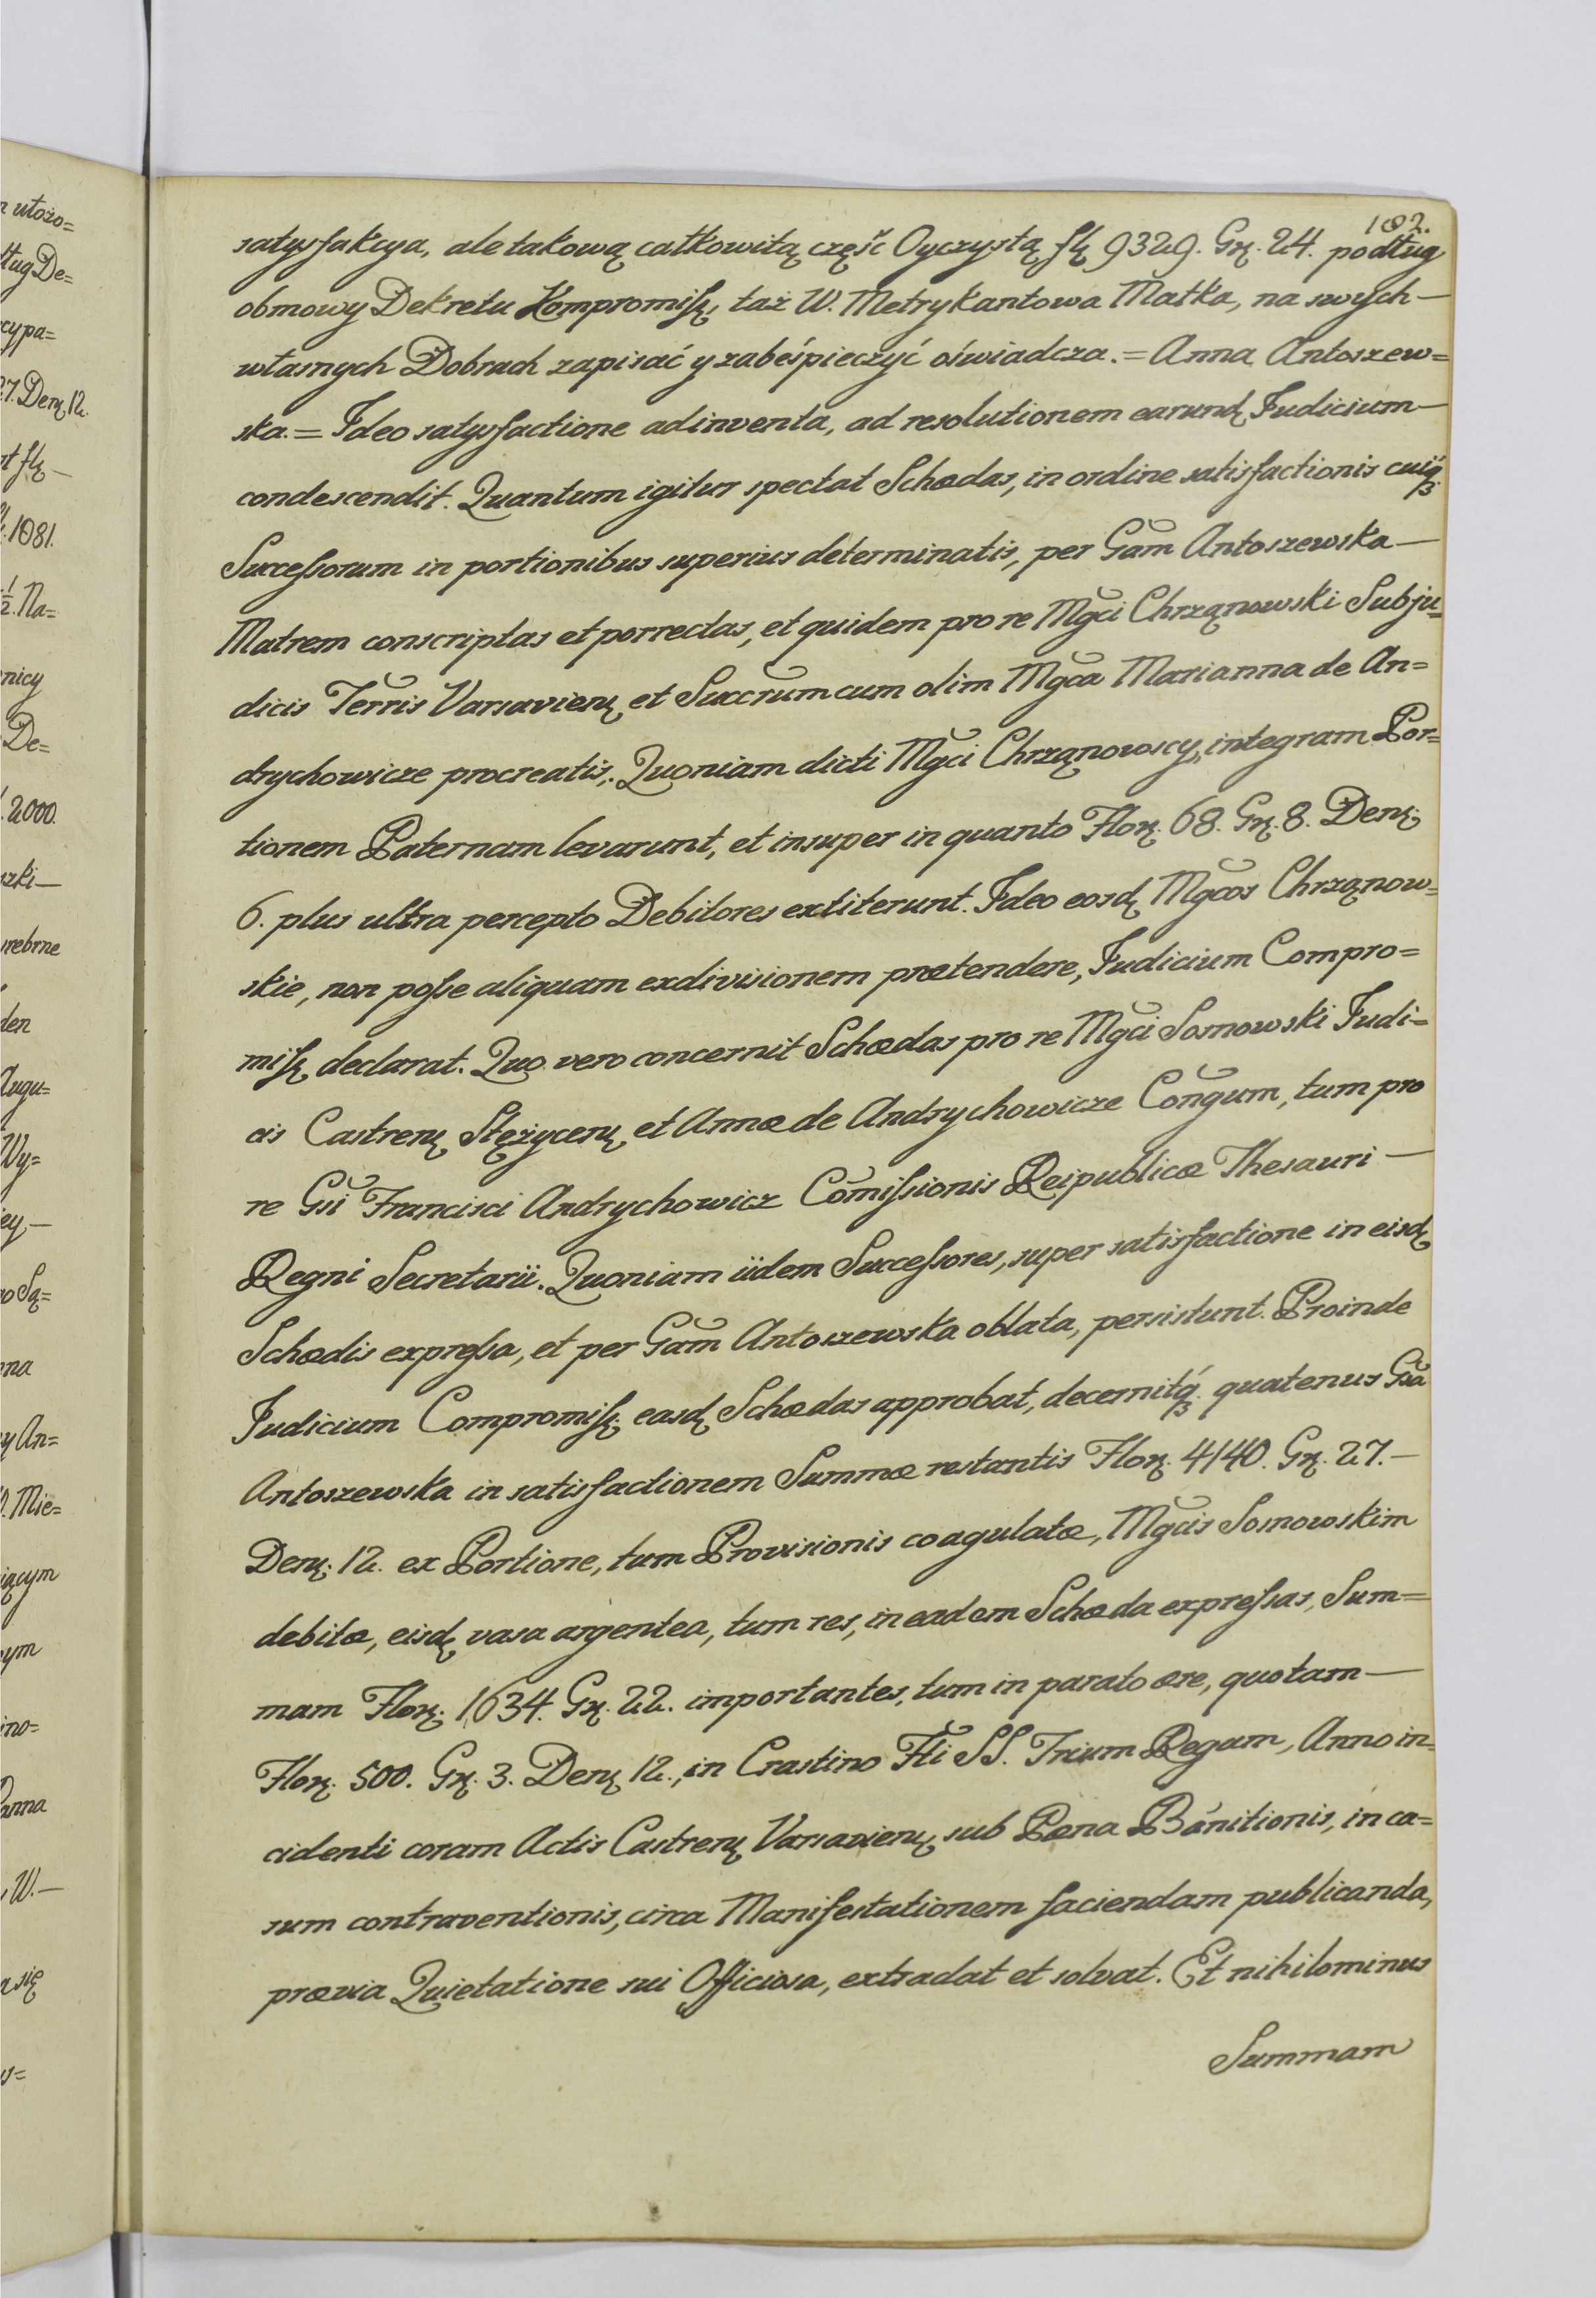 182.
satysfakcya, ale takową całkowitą część Oyczystą fl. 9329. Gr. 24. podług
obmowy Dekretu Kompromiss. taż W. Metrykantowa Matka, na swych —
własnych Dobrach zapisać y zabeśpieczyć oświadcza. = Anna Antoszew=
ska. = Ideo satysfactione adinventa, ad resolutionem earund. Judicium —
condescendit. Quantum igitur spectat Schædas, in ordine satisfactionis cuiq3
Successorum in portionibus superius determinatis, per Gam Antoszewska —
Matrem conscriptas et porrectas, et quidem pro re Mgci Chrząnowski Subju=
dicis Terris Varsavien. et Succrum cum olim Mgca Marianna de An=
drychowicze procreatis, Quoniam dicti Mgci Chrząnowscy, integram Por=
tionem Paternam levarunt, et insuper in quanto Flor. 68. Gr. 8. Den.
6. plus ultra percepto Debitores extiterunt. Ideo eosd. Mgcos Chrząnow=
skie, non posse aliquam exdivisionem prætendere, Judicium Compro=
miss. declarat. Quo vero concernit Schædas pro re Mgci Sosnowski Judi=
cis Castren. Stężycen. et Annæ de Andrychowicze Congum, tum pro
re Gsi Francisci Andrychowicz Comissionis Reipublicæ Thesauri —
Regni Secretarii. Quoniam iidem Successores, super satisfactione in eisd.
Schædis expressa, et per Gam Antoszewska oblata, persistunt. Proinde
Judicium Compromiss. easd. Schædas approbat, decernitq3 quatenus Gsa
Antoszewska in satisfactionem Summæ restantis Flor. 4140. Gr. 27. —
Den. 12. ex Portione, tum Provisionis coagulatæ, Mgcis Sosnowskim
debitæ, eisd. vasa argentea, tum res, in eadem Schæda expressas, Sum=
mam Flor. 1634. Gr. 22. importantes, tum in parato ære, quotam —
Flor. 500. Gr. 3. Den. 12., in Crastino Fti SS. Trium Regum, Anno in=
cidenti coram Actis Castren. Varsavien. sub Pœna Banitionis, in ca=
sum contraventionis, circa Manifestationem faciendam publicanda,
prævia Quietatione sui Officiosa, extradat et solvat. Et nihilominus
Summam